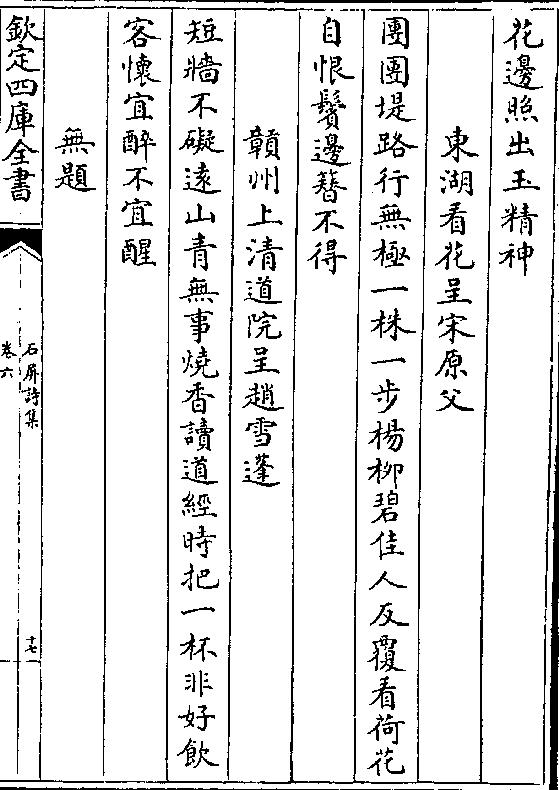 花邊照出玉精神
東湖看花呈宋原父
團團堤路行無極一株一步楊柳碧佳人反覆看荷花
自恨鬢邊簪不得
贛州上清道院呈趙雪蓬
短牆不礙遠山青無事燒香讀道經時把一杯非好飲
客懷宜醉不宜醒
無題
欽定四庫全書
石屏詩集
卷六
十七